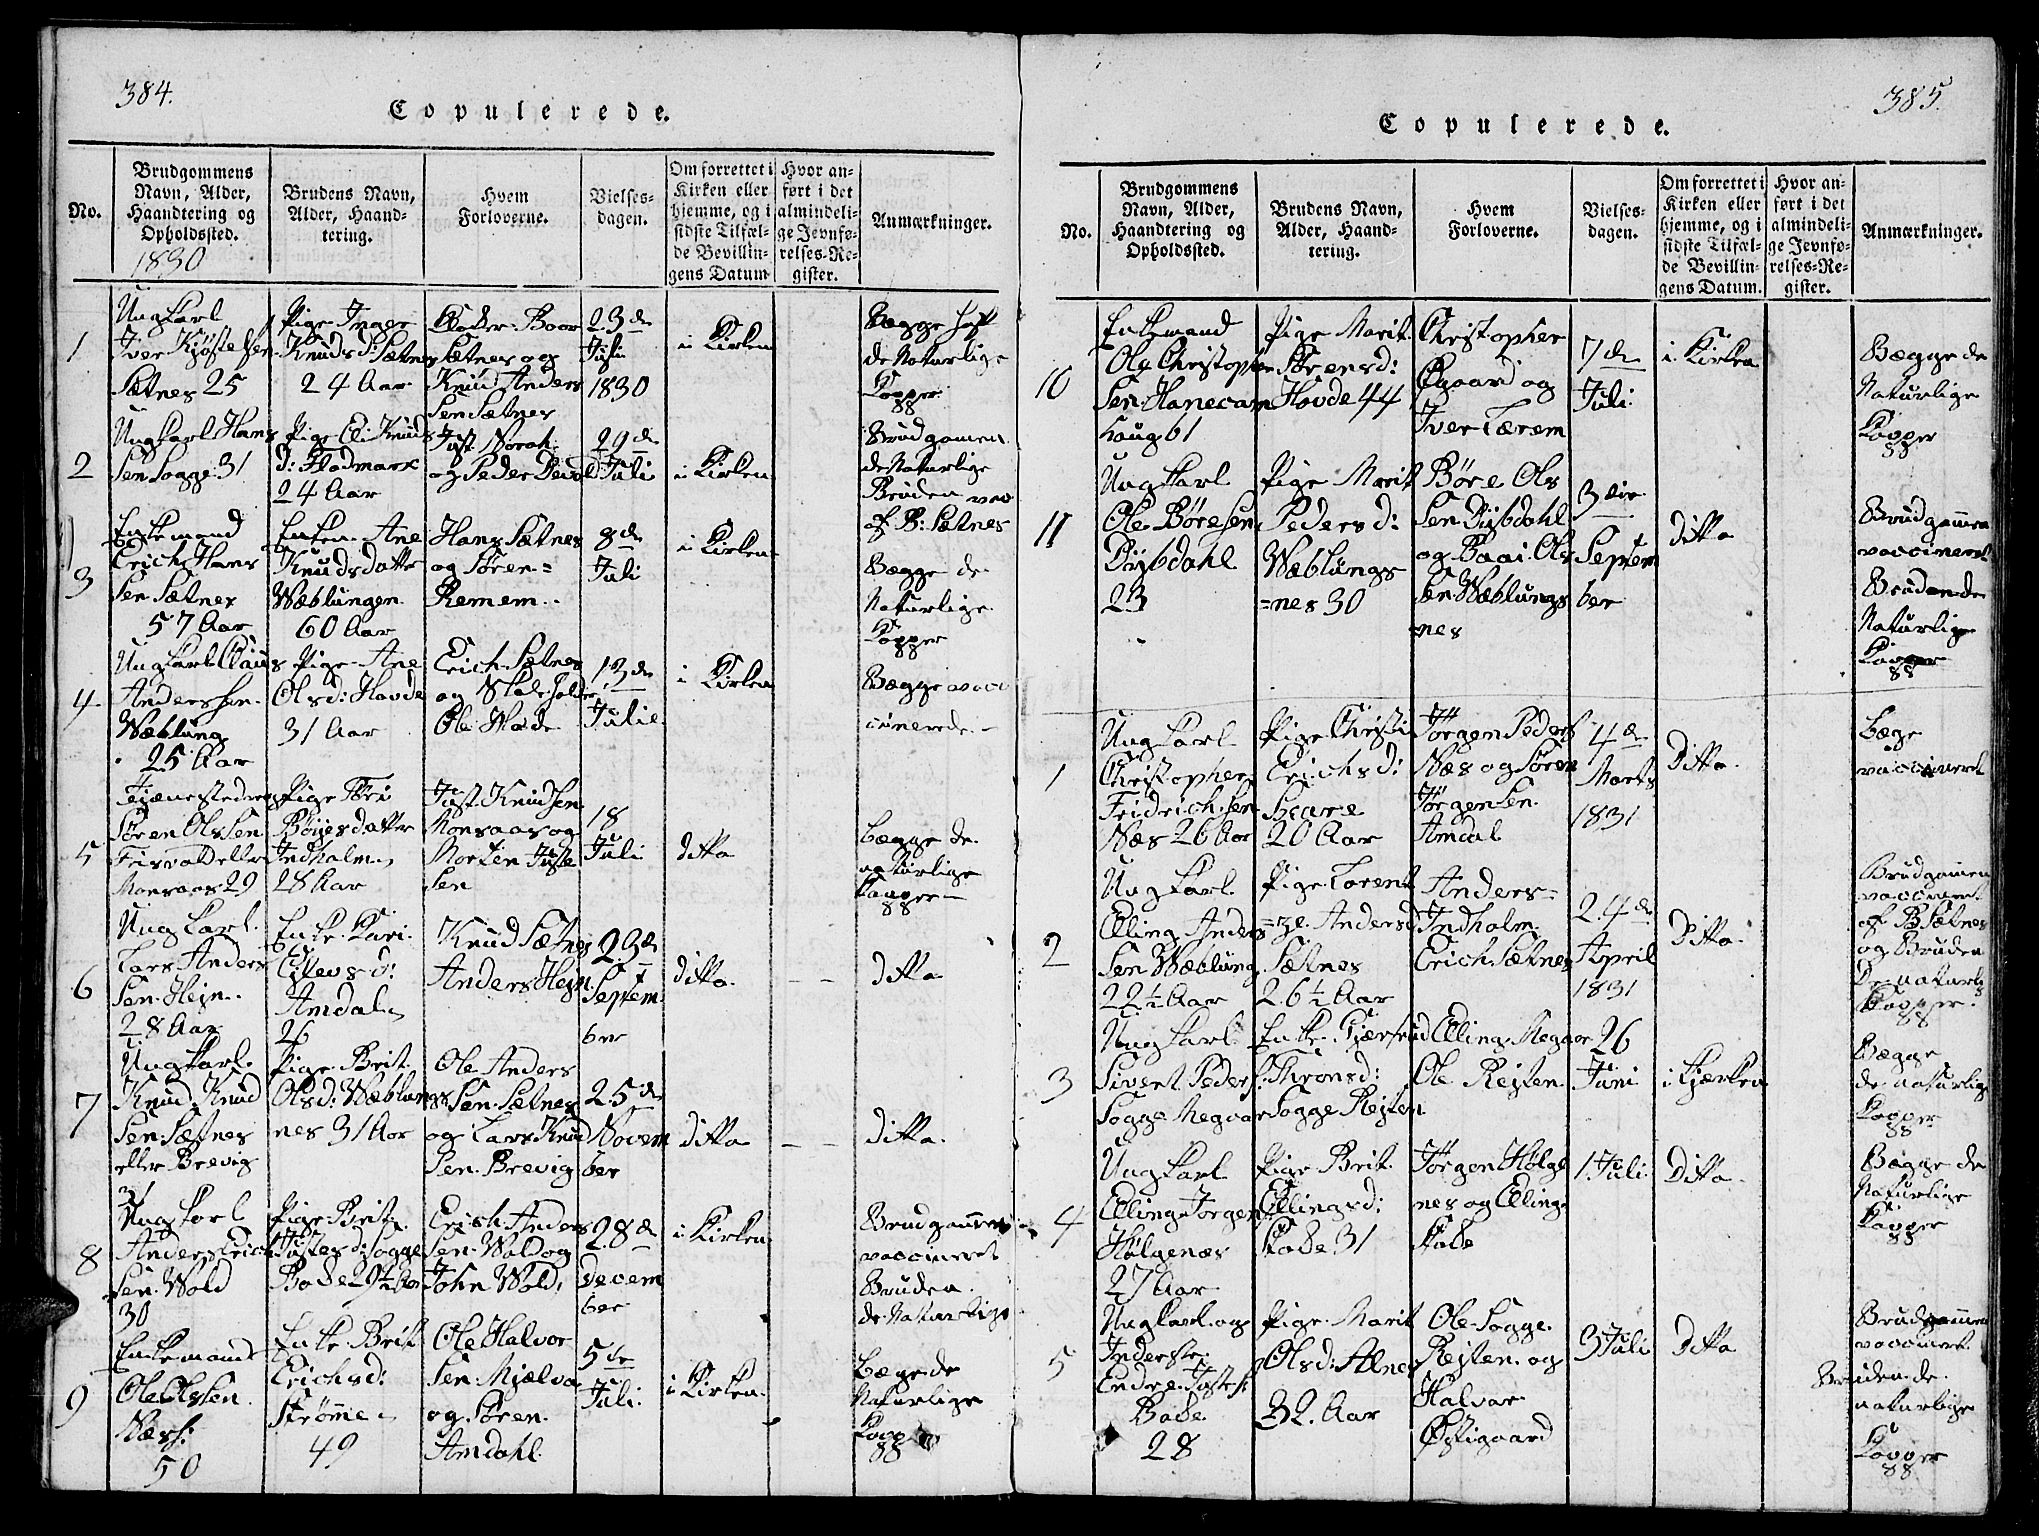 384.
Copulerede.
No.
Brudgommens
Navn, Alder,
Haandtering og
Opholdssted.
1830
Brudens Navn,
Alder, Haand-
tering.
Hvem
Forloverne.
Vielses-
dagen.
Om forrettet i
Kirken eller
hjemme, og i
sidste Tilfæl-
de Bevillin-
gens Datum
Hvor an-
ført i det
almindeli-
ge Jevnfø-
relses-Re-
gister.
Anmærkninger.
1
Ungkarl
Iver Kjøstelsen
Sætnes 25
Pige Inger
Knudsd: Sætnes
24 Aar
Peder Boor
Sætnes og
Knud Anders
Sen Sætnes
23de
Juli
1830
i Kirken
Begge haft
de Naturlige
Kopper
2
Ungkarl Hans
Sen Sogge 31
Pige Eli Knuds
d: Fladmark
24 Aar
Just Norah
og Peder Devold
29de
Juli
i Kirken
Brudgomen
de Naturlige
Bruden vac
af B: Sætnes
3
Enkemand
Erich Hans
Sen Sætnes
57 Aar
Enken Ane
Knudsdatter
Wæblungen
60 Aar
Hans Sætnes
og Søren =
Remem
8de
Juli
i Kirken
Begge de
Naturlige
Kopper
4
Ungkarl Claus
Andersen
Wæblung
25 Aar
Pige Ane
Olsd: Hovde
31 Aar
Erich Sætnes
og Skoleholder
Ole Hovde
13de
Julie
i Kirken
Begge vacci
cinerede
5
Tjænestedreng
Søren Olssen
Frisvold eller
Monsaas 29
Pige Føri
Børjesdatter
Indholm
28 Aar
Just Knudsen
Monsaas og
Morten Juste
Sen
18
Juli
ditto
Begge de
naturlige
Kopper
6
Ungkarl
Lars Anders
Sen Hejn
28 Aar
Enke Kari
Ellevsd:
Amdal
26
Knud Sætnes
Anders Hejn
23de
Septem
ber
ditto
ditto
7
Ungkarl
Knud Knud
Sen Sætnes
eller Brevig
31
Pige Brit
Olsd: Wæblungs
nes 31 Aar
Ole Anders
Sen Sætnes
og Lars Knud
Sen Brevig
25de
Novem
ber
ditto
ditto
8
Ungkarl
Anders Erich
Sen Wold
30
Pige Brit
Justesd: Sogge
Bode 29½ Aar
Erich Anders
Sen Wold og
John Wold
28de
Decem
ber
i Kirken
Brudgommen
vaccineret
Bruden
de Naturlige
9
Enkemand
Ole Olssen
Næss:
50
Enke Brit
Erichsd:
Strømme
49
Ole Halvor
Sen Mjælva
og Søren
Amdahl
5de
Juli
i Kirken
Begge de
Naturlige
Kopper
385.
Copulerede.
No.
Brudgommens
Navn, Alder,
Haandtering og
Opholdssted.
Brudens Navn,
Alder, Haand-
tering.
Hvem
Forloverne.
Vielses-
dagen.
Om forrettet i
Kirken eller
hjemme, og i
sidste Tilfæl-
de Bevillin-
gens Datum.
Hvor an-
ført i det
almindeli-
ge Jevnfø-
relses-Re-
gister.
Anmærkninger.
10
Enkemand
Ole Christopher
Sen Hanecam
haug 61
Pige Marit
Sørensd:
Hovde 44
Christopher
Øgaard og
Iver Lærem
7de
Juli
i Kirken
Begge de
Naturlige
Kopper
11
Ungkarl
Ole Børesen
Dybdahl
23
Pige Marit
Pedersd:
Wæblungs
=nes 30
Børe Ols
Sen Dybdahl
og Baai Ols
Sen Wæblungs
nes
3die
Septem
ber
ditto
Brudgommen
vaccineret
Bruden de
Naturlige
Kopper
1
Ungkarl
Christopher
Fridrichsen
Næs 26 Aar
Pige Christi
Erichsd:
Skare
20 Aar
Jørgen Peders
Næs og Søren
Jørgensen
Amdal
4de
Marts
1831
Ditto
Bege
vaccineret
2
Ungkarl
Elling Anders
Sen Wæblung
22½ Aar
Pige Lorent
=ze Andersd
Sætnes
26½ Aar
Anders =
Indholm
Erich Sætnes
24de
April
1831
Ditto
Brudgomen
vaccineret
af B Sætnes
og Bruden
De naturlig
Kopper
3
Ungkarl
Sivert Peders:
Sogge Megvar
Enke Gjærtrud
Thronsd:
Sogge Rejten
Elling Meggor
Ole Rejten
26
Juni
i Kjærken
Bægge
de naturlig
Kopper
4
Ungkarl
Elling Jørgen
Hølgenæs
27 Aar
Pige Brit
Ellingsd:
Stode 31
Jørgen Hølge
nes og Elling
Stode
1 Juli
Ditto
Bægge de
Naturlige
Kopper
5
Ungkarl og
Inderste
Endre Justes:
Bode
28
Pige Marit
Olsd: Alnes
32 Aar
Ole Sogge
Rejten og
Halvor
Østigaard
3 Juli
Ditto
Brudgommen
vaccineret
Bruden de
naturlige
Kopper